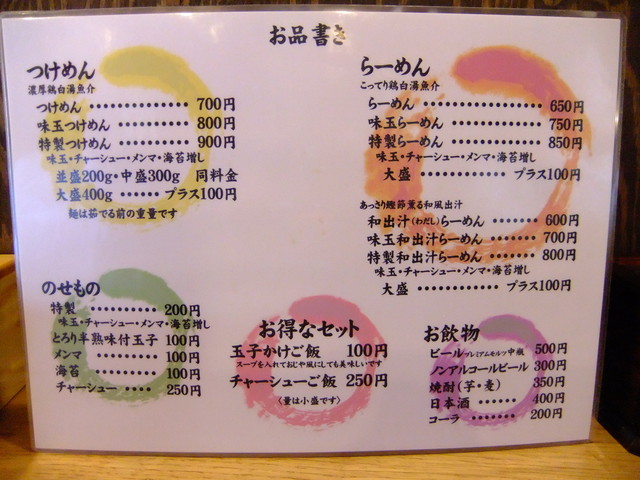 お品書き
つけめん
濃厚鶏白湯魚介
つけめん ・・・・・・・・・・・・・・ 700円
味玉つけめん ・・・・・・・・・・・ 800円
特製つけめん ・・・・・・・・・・・ 900円
味玉・チャーシュー・メンマ・海苔増し
並盛200g・中盛300g 同料金
大盛400g ・・・・・・ プラス100円
麺は茹でる前の重量です
らーめん
こってり鶏白湯魚介
らーめん ・・・・・・・・・・・・・・ 650円
味玉らーめん ・・・・・・・・・・・ 750円
特製らーめん ・・・・・・・・・・・ 850円
味玉・チャーシュー・メンマ・海苔増し
大盛 ・・・・・・・・・・・・ プラス100円
あっさり鰹節薫る和風出汁
和出汁(わだし)らーめん ・・・・・・ 600円
味玉和出汁らーめん ・・・・・・ 700円
特製和出汁らーめん ・・・・・・ 800円
味玉・チャーシュー・メンマ・海苔増し
大盛 ・・・・・・・・・・・・ プラス100円
のせもの
特製 ・・・・・・・・・・ 200円
味玉・チャーシュー・メンマ・海苔増し
とろり半熟味付玉子 100円
メンマ ・・・・・・・・・ 100円
海苔 ・・・・・・・・・・ 100円
チャーシュー ・・・・・ 250円
お得なセット
玉子かけご飯 100円
スープを入れておじや風にしても美味しいです
チャーシューご飯 250円
〈量は小盛です〉
お飲物
ビール プレミアムモルツ中瓶 500円
ノンアルコールビール 300円
焼酎(芋・麦) 350円
日本酒 ・・・・・・ 400円
コーラ ・・・・・・・ 200円